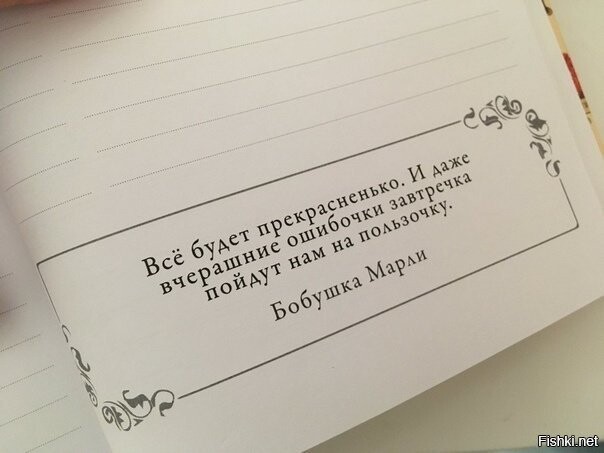 Всё будет прекрасненько. И даже
вчерашние ошибочки завтречка
пойдут нам на пользочку.
Бобушка Марли
Fishki.net